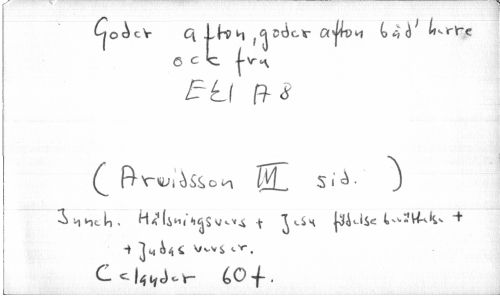 Goder afton, goder afton båd' herre
ock fru
EÉl A 8
(Arwidsson III sid. )
Inneh. Hälsningsvers + Jesu födelseberättelse +
+ Judas verser.
Celander 60f.